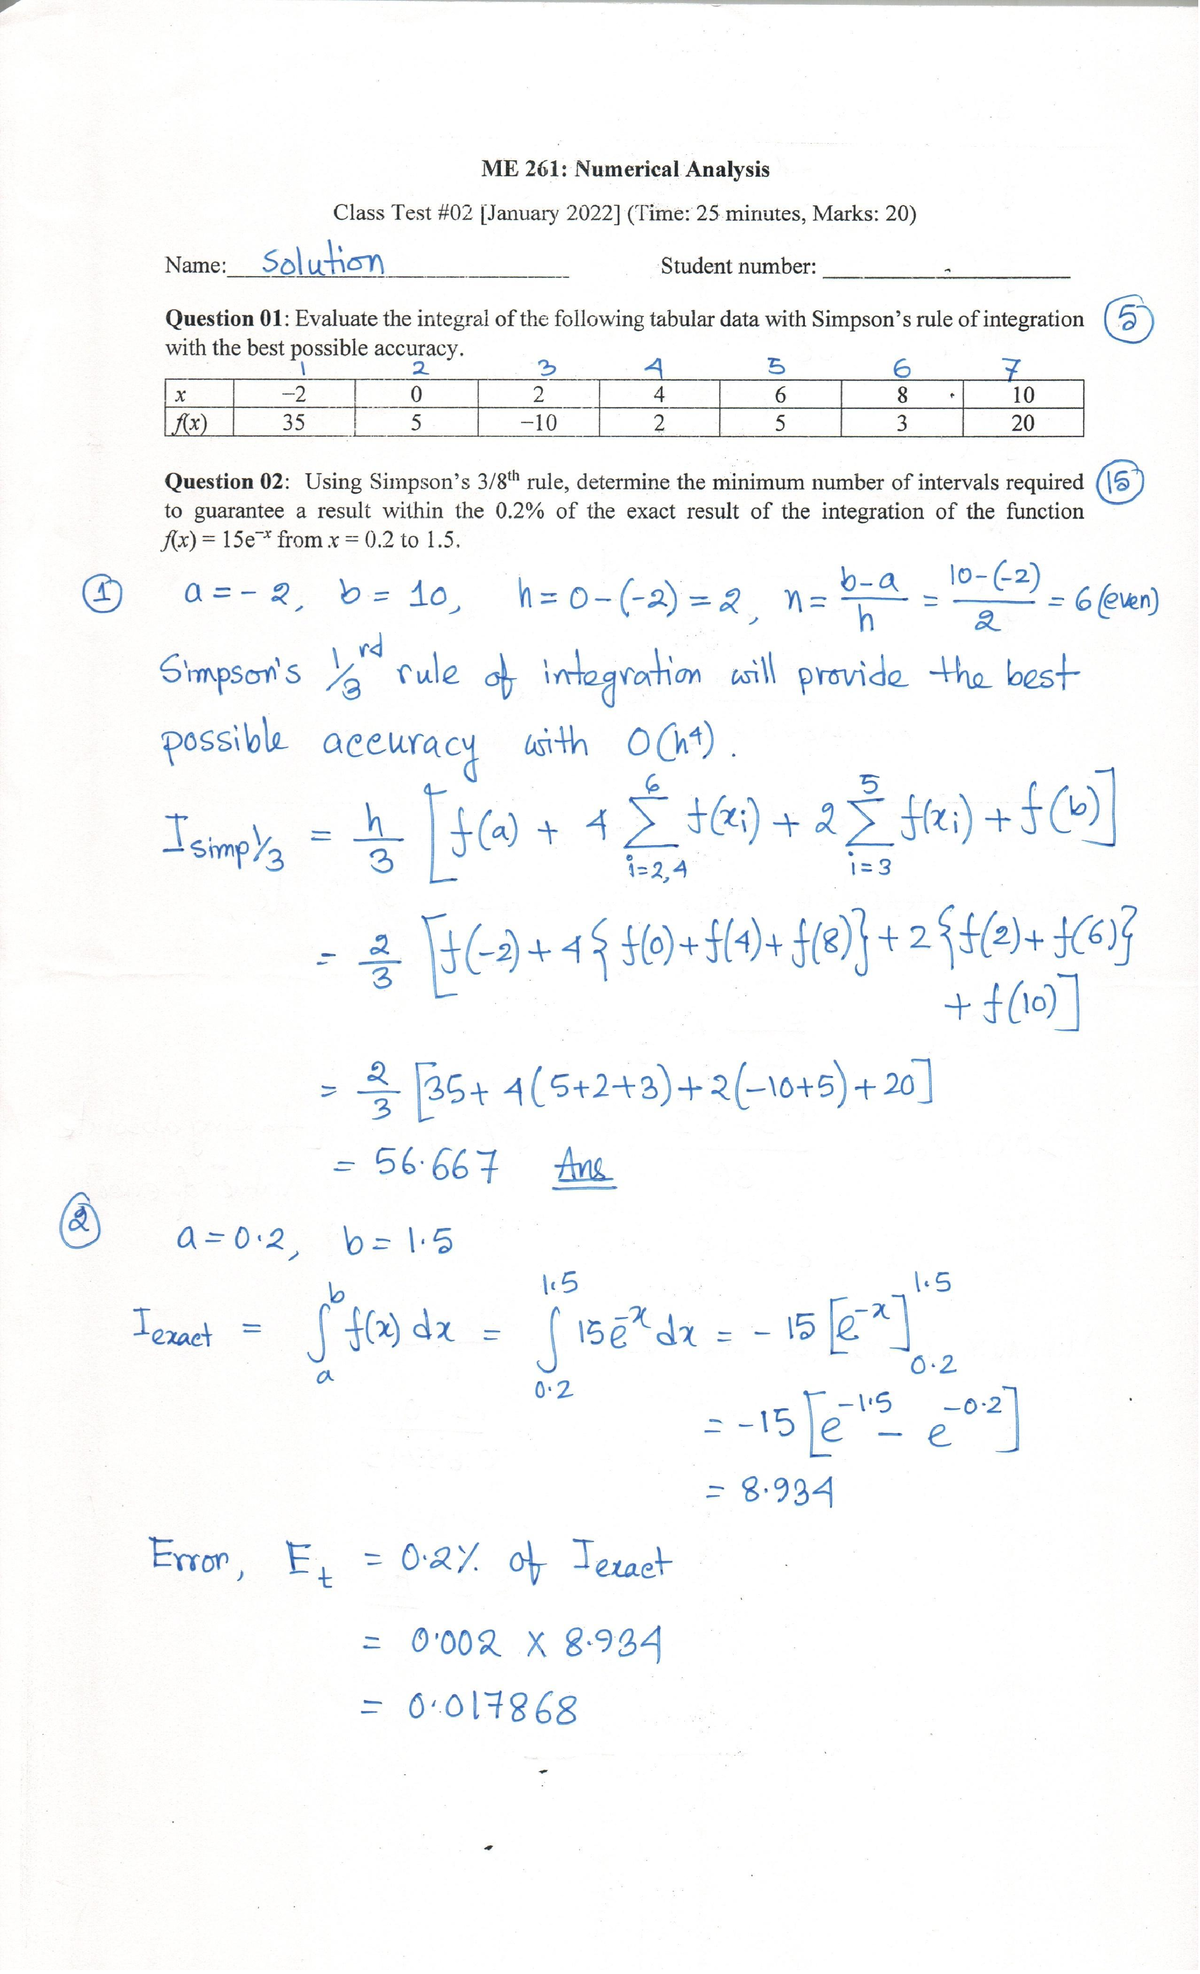 ME 261: Numerical Analysis
Class Test #02 [January 2022] (Time: 25 minutes, Marks: 20)
Name: Solution Student number:
Question 01: Evaluate the integral of the following tabular data with Simpson's rule of integration (5)
with the best possible accuracy.
1 2 3 4 5 6 7
x −2 0 2 4 6 8 10
f(x) 35 5 −10 2 5 3 20
Question 02: Using Simpson's 3/8th rule, determine the minimum number of intervals required (15)
to guarantee a result within the 0.2% of the exact result of the integration of the function
f(x) = 15e⁻ˣ from x = 0.2 to 1.5.
① a = -2, b = 10, h = 0-(-2) = 2, n = (b-a)/h = (10-(-2))/2 = 6 (even)
Simpson's 1/3 rd rule of integration will provide the best
possible accuracy with O(h⁴).
I simp 1/3 = h/3 [f(a) + 4 Σ_{i=2,4}^{6} f(xi) + 2 Σ_{i=3}^{5} f(xi) + f(b)]
= 2/3 [f(-2) + 4{f(0)+f(4)+f(8)} + 2{f(2)+f(6)}
+ f(10)]
= 2/3 [35+ 4(5+2+3)+2(-10+5)+20]
= 56.667 Ans
② a = 0.2, b = 1.5
I exact = ∫_a^b f(x) dx = ∫_{0.2}^{1.5} 15e⁻ˣ dx = -15 [e⁻ˣ]_{0.2}^{1.5}
= -15 [e^{-1.5} - e^{-0.2}]
= 8.934
Error, E_t = 0.2% of I exact
= 0.002 x 8.934
= 0.017868